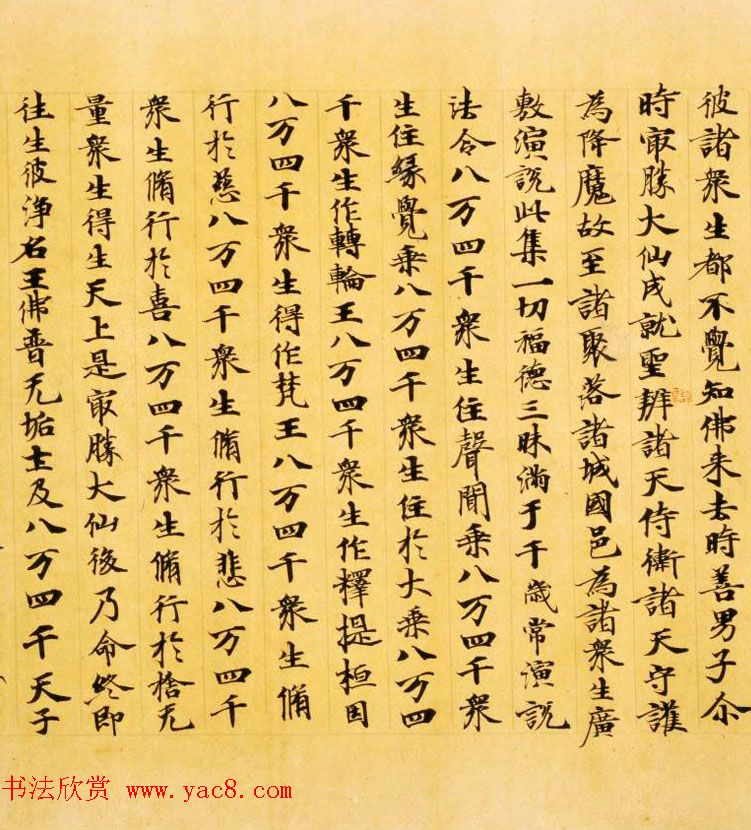 彼諸衆生都不覺知佛来去時善男子尒
時㝡勝大仙成就聖辨諸天侍衛諸天守護
為降魔故至諸聚落諸城國邑為諸衆生廣
敷演說此集一切福德三昧滿于千歲常演說
法令八万四千衆生住聲聞乗八万四千衆
生住緣覺乗八万四千衆生住於大乗八万四
千衆生作轉輪王八万四千衆生作釋提桓因
八万四千衆生得作梵王八万四千衆生脩
行於慈八万四千衆生脩行於悲八万四千
衆生脩行於喜八万四千衆生脩行於捨无
量衆生得生天上是㝡勝大仙後乃命終即
往生彼淨名王佛普无垢土及八万四千天子
书法欣赏 www.yac8.com